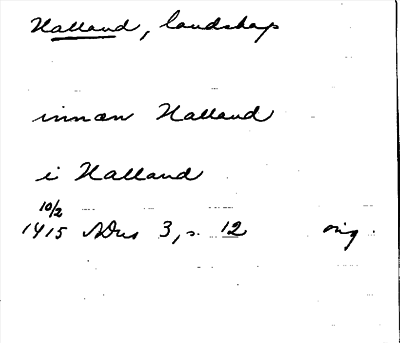 Halland, landskap
innan Halland
i Halland
10/2
1415 SDns 3, s. 12 orig.